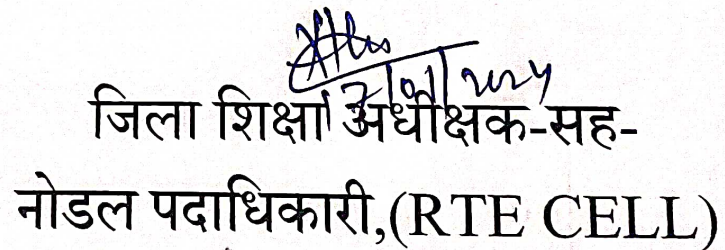 जिला शिक्षा अधीक्षक-सह-
नोडल पदाधिकारी,(RTE CELL)